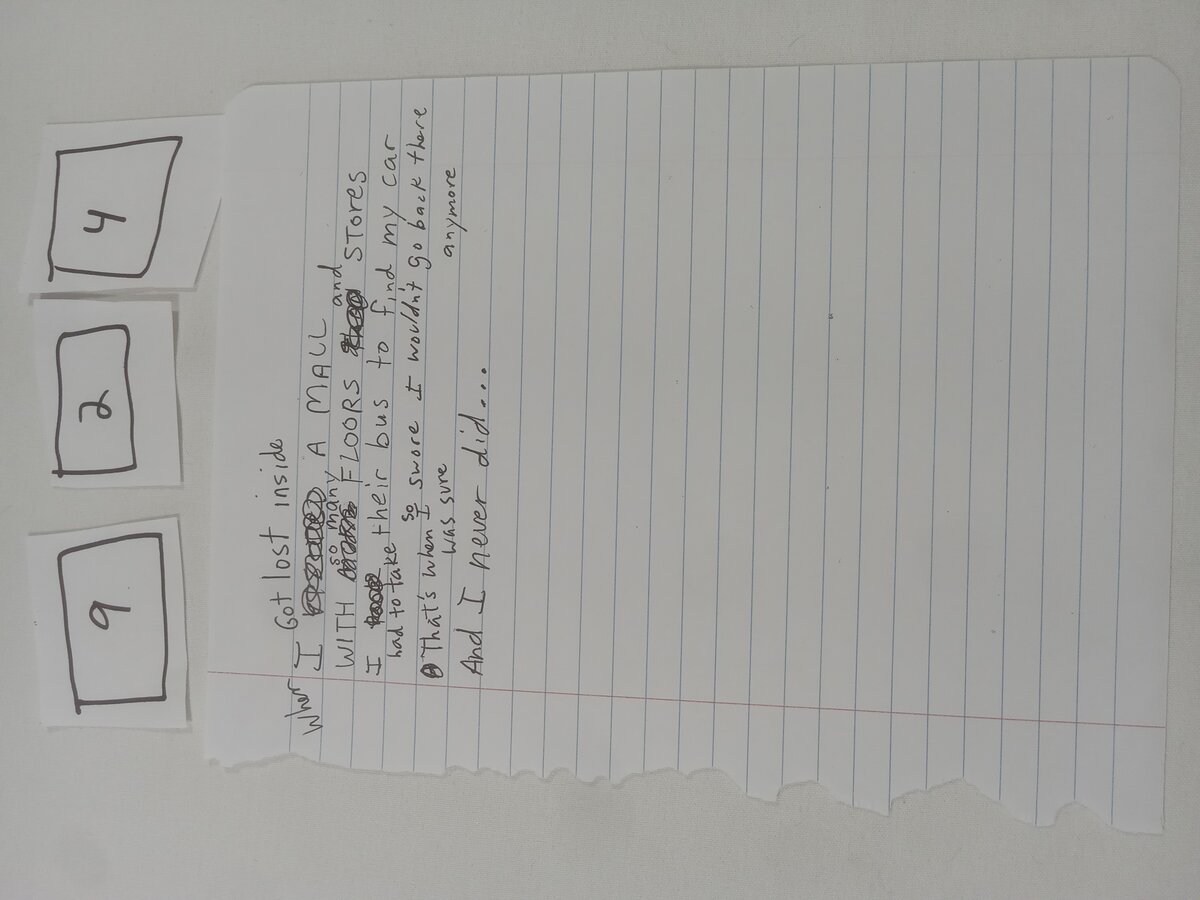 9
2
4
Got lost inside
When I A MALL
so many and
WITH FLOORS STores
I their bus to find my car
had to take
so
That's when I swore I wouldn't go back there
was sure anymore
And I never did....